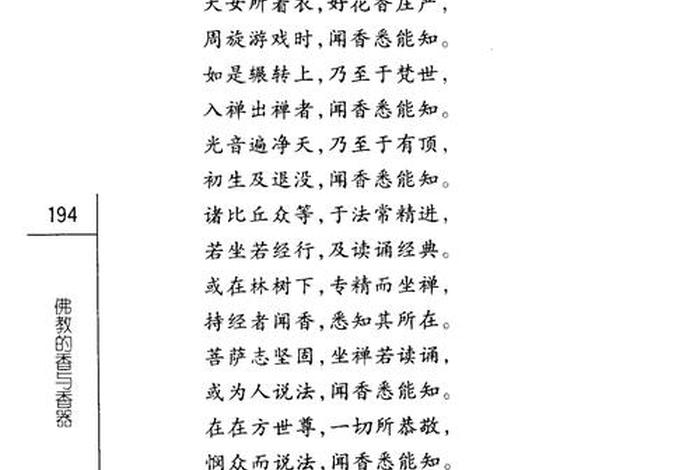 天女所着衣,好花香庄严,
周旋游戏时,闻香悉能知。
如是辗转上,乃至于梵世,
入禅出禅者,闻香悉能知。
光音遍净天,乃至于有顶,
初生及退没,闻香悉能知。
诸比丘众等,于法常精进,
若坐若经行,及读诵经典。
或在林树下,专精而坐禅,
持经者闻香,悉知其所在。
菩萨志坚固,坐禅若读诵,
或为人说法,闻香悉能知。
在在方世尊,一切所恭敬,
悯众而说法,闻香悉能知。
194
佛教的香与香器